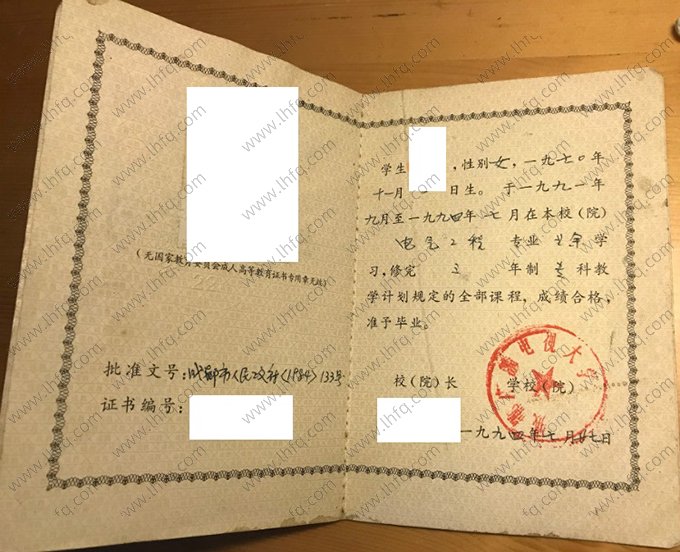 (无国家教育委员会成人高等教育证书专用章无效)
批准文号:成都市人民政府<1984>133号
证书编号:
学生 ,性别女,一九七〇年
十一月 日生。于一九九一年
九月至一九九四年七月在本校(院)
电气工程 专业 学
习,修完 三 年制 专 科教
学计划规定的全部课程,成绩合格,
准予毕业。
校(院)长 学校(院)
一九九四年七月廿七日
成都广播电视大学
www.lhfq.com